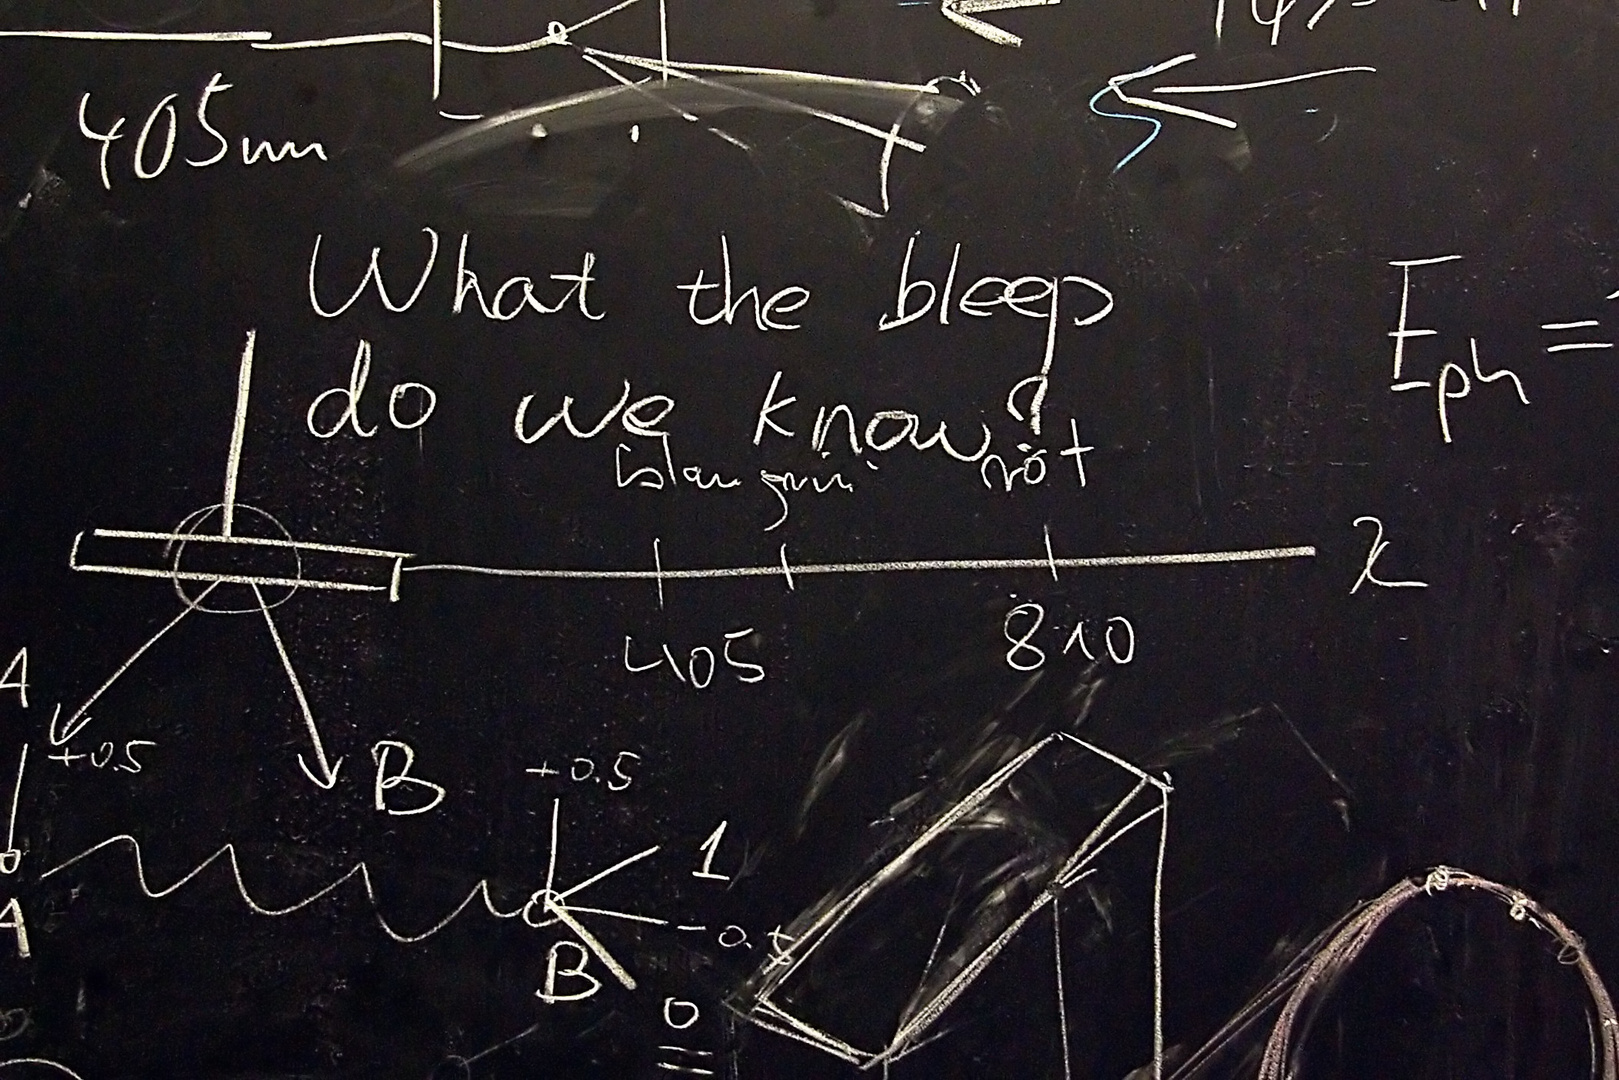 405nm
What the bleep
do we know?
blau grün rot
Eph =
405 810
λ
A
+0.5
B
+0.5
1
A
B
0